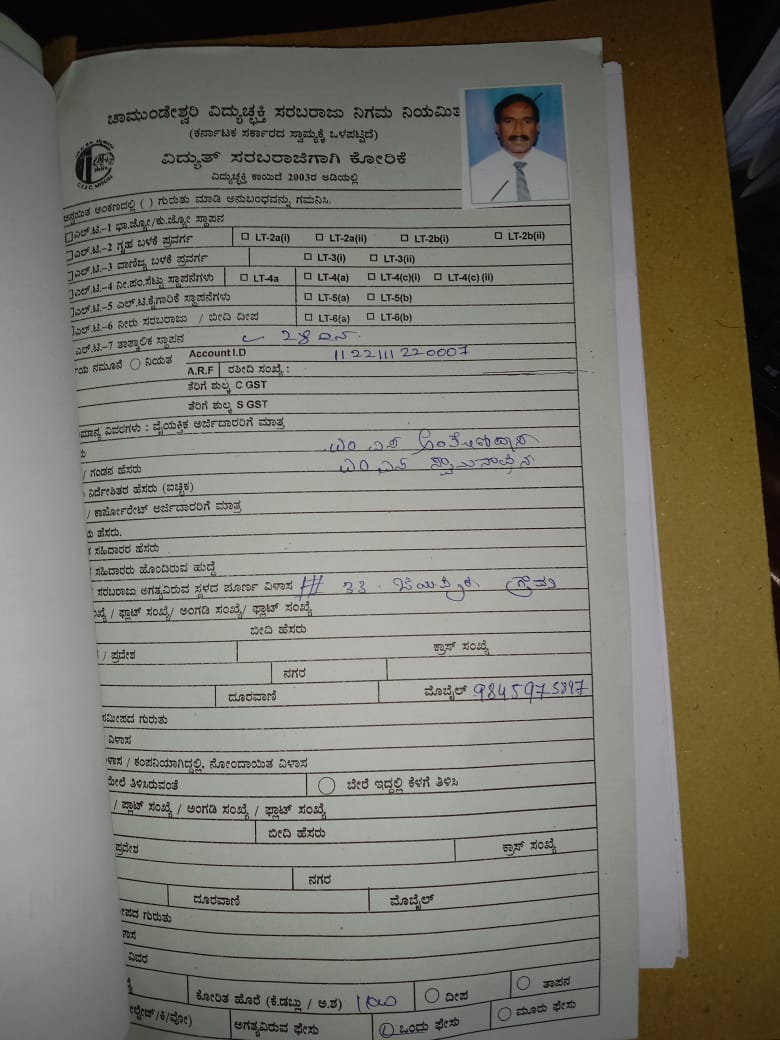 ಚಾಮುಂಡೇಶ್ವರಿ ವಿದ್ಯುಚ್ಛಕ್ತಿ ಸರಬರಾಜು ನಿಗಮ ನಿಯಮಿತ
(ಕರ್ನಾಟಕ ಸರ್ಕಾರದ ಸ್ವಾಮ್ಯಕ್ಕೆ ಒಳಪಟ್ಟಿದೆ)
ವಿದ್ಯುತ್ ಸರಬರಾಜಿಗಾಗಿ ಕೋರಿಕೆ
ವಿದ್ಯುಚ್ಛಕ್ತಿ ಕಾಯಿದೆ 2003ರ ಅಡಿಯಲ್ಲಿ
ಅನ್ವಯಿತ ಅಂಕಣದಲ್ಲಿ ( ) ಗುರುತು ಮಾಡಿ ಅನುಬಂಧವನ್ನು ಗಮನಿಸಿ.
ಎಲ್.ಟಿ.-1 ಭಾ.ಜ್ಯೋ/ಕು.ಜ್ಯೋ ಸ್ಥಾಪನ
ಎಲ್.ಟಿ.-2 ಗೃಹ ಬಳಕೆ ಪ್ರವರ್ಗ LT-2a(i) LT-2a(ii) LT-2b(i) LT-2b(ii)
ಎಲ್.ಟಿ.-3 ವಾಣಿಜ್ಯ ಬಳಕೆ ಪ್ರವರ್ಗ LT-3(i) LT-3(ii)
ಎಲ್.ಟಿ.-4 ನೀ.ಪಂ.ಸೆಟ್ಟು ಸ್ಥಾಪನೆಗಳು LT-4a LT-4(a) LT-4(c)(i) LT-4(c) (ii)
ಎಲ್.ಟಿ.-5 ಎಲ್.ಟಿ.ಕೈಗಾರಿಕೆ ಸ್ಥಾಪನೆಗಳು LT-5(a) LT-5(b)
ಎಲ್.ಟಿ.-6 ನೀರು ಸರಬರಾಜು / ಬೀದಿ ದೀಪ LT-6(a) LT-6(b)
ಎಲ್.ಟಿ.-7 ತಾತ್ಕಾಲಿಕ ಸ್ಥಾಪನ 28
ಯ ನಮೂನೆ ನಿಯತ Account I.D 1122111220007
A.R.F ರಶೀದಿ ಸಂಖ್ಯೆ :
ತೆರಿಗೆ ಶುಲ್ಕ C GST
ತೆರಿಗೆ ಶುಲ್ಕ S GST
ಮಾನ್ಯ ವಿವರಗಳು : ವೈಯಕ್ತಿಕ ಅರ್ಜಿದಾರರಿಗೆ ಮಾತ್ರ
/ ಗಂಡನ ಹೆಸರು
ನಿರ್ದೇಶಿತರ ಹೆಸರು (ಐಚ್ಛಿಕ)
/ ಕಾರ್ಪೊರೇಟ್ ಅರ್ಜಿದಾರರಿಗೆ ಮಾತ್ರ
ರು ಹೆಸರು.
ಸಹಿದಾರರ ಹೆಸರು
ಸಹಿದಾರರು ಹೊಂದಿರುವ ಹುದ್ದೆ
ಸರಬರಾಜು ಅಗತ್ಯವಿರುವ ಸ್ಥಳದ ಪೂರ್ಣ ವಿಳಾಸ # 33
ಖ್ಯೆ / ಫ್ಲಾಟ್ ಸಂಖ್ಯೆ/ ಅಂಗಡಿ ಸಂಖ್ಯೆ/ ಫ್ಲಾಟ್ ಸಂಖ್ಯೆ
ಬೀದಿ ಹೆಸರು
/ ಪ್ರದೇಶ ಕ್ರಾಸ್ ಸಂಖ್ಯೆ
ನಗರ
ದೂರವಾಣಿ ಮೊಬೈಲ್ 9845975897
ಸಮೀಪದ ಗುರುತು
ವಿಳಾಸ
ಳಾಸ / ಕಂಪನಿಯಾಗಿದ್ದಲ್ಲಿ, ನೋಂದಾಯಿತ ವಿಳಾಸ
ಮೇಲೆ ತಿಳಿಸಿರುವಂತೆ ಬೇರೆ ಇದ್ದಲ್ಲಿ ಕೆಳಗೆ ತಿಳಿಸಿ
/ ಪ್ಲಾಟ್ ಸಂಖ್ಯೆ / ಅಂಗಡಿ ಸಂಖ್ಯೆ / ಫ್ಲಾಟ್ ಸಂಖ್ಯೆ
ಬೀದಿ ಹೆಸರು
ಪ್ರದೇಶ ಕ್ರಾಸ್ ಸಂಖ್ಯೆ
ನಗರ
ದೂರವಾಣಿ ಮೊಬೈಲ್
ೀಪದ ಗುರುತು
ಳಾಸ
ವಿವರ
ಕೋರಿತ ಹೊರೆ (ಕೆ.ಡಬ್ಲು / ಅ.ಶ) ದೀಪ ತಾಪನ
ಅಗತ್ಯವಿರುವ ಫೇಸು ಒಂದು ಫೇಸು ಮೂರು ಫೇಸು